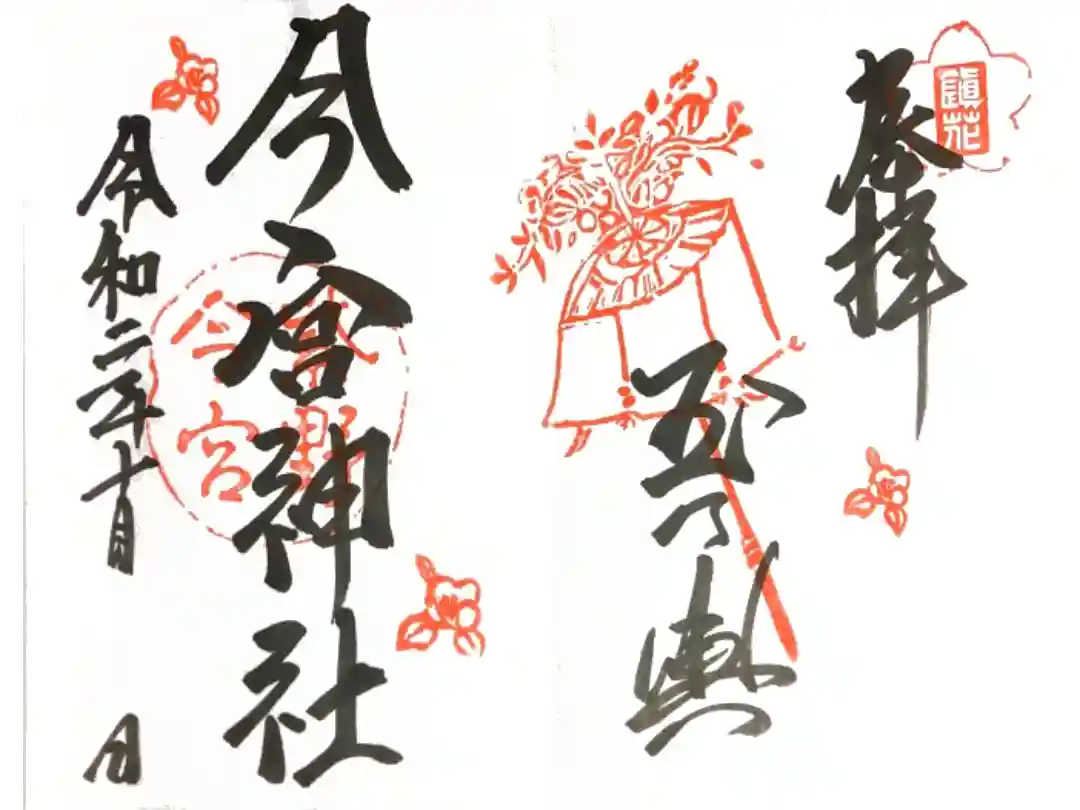 奉拝
鎮花
玉乃輿
今宮神社
紫野
今宮
令和二年十月 日